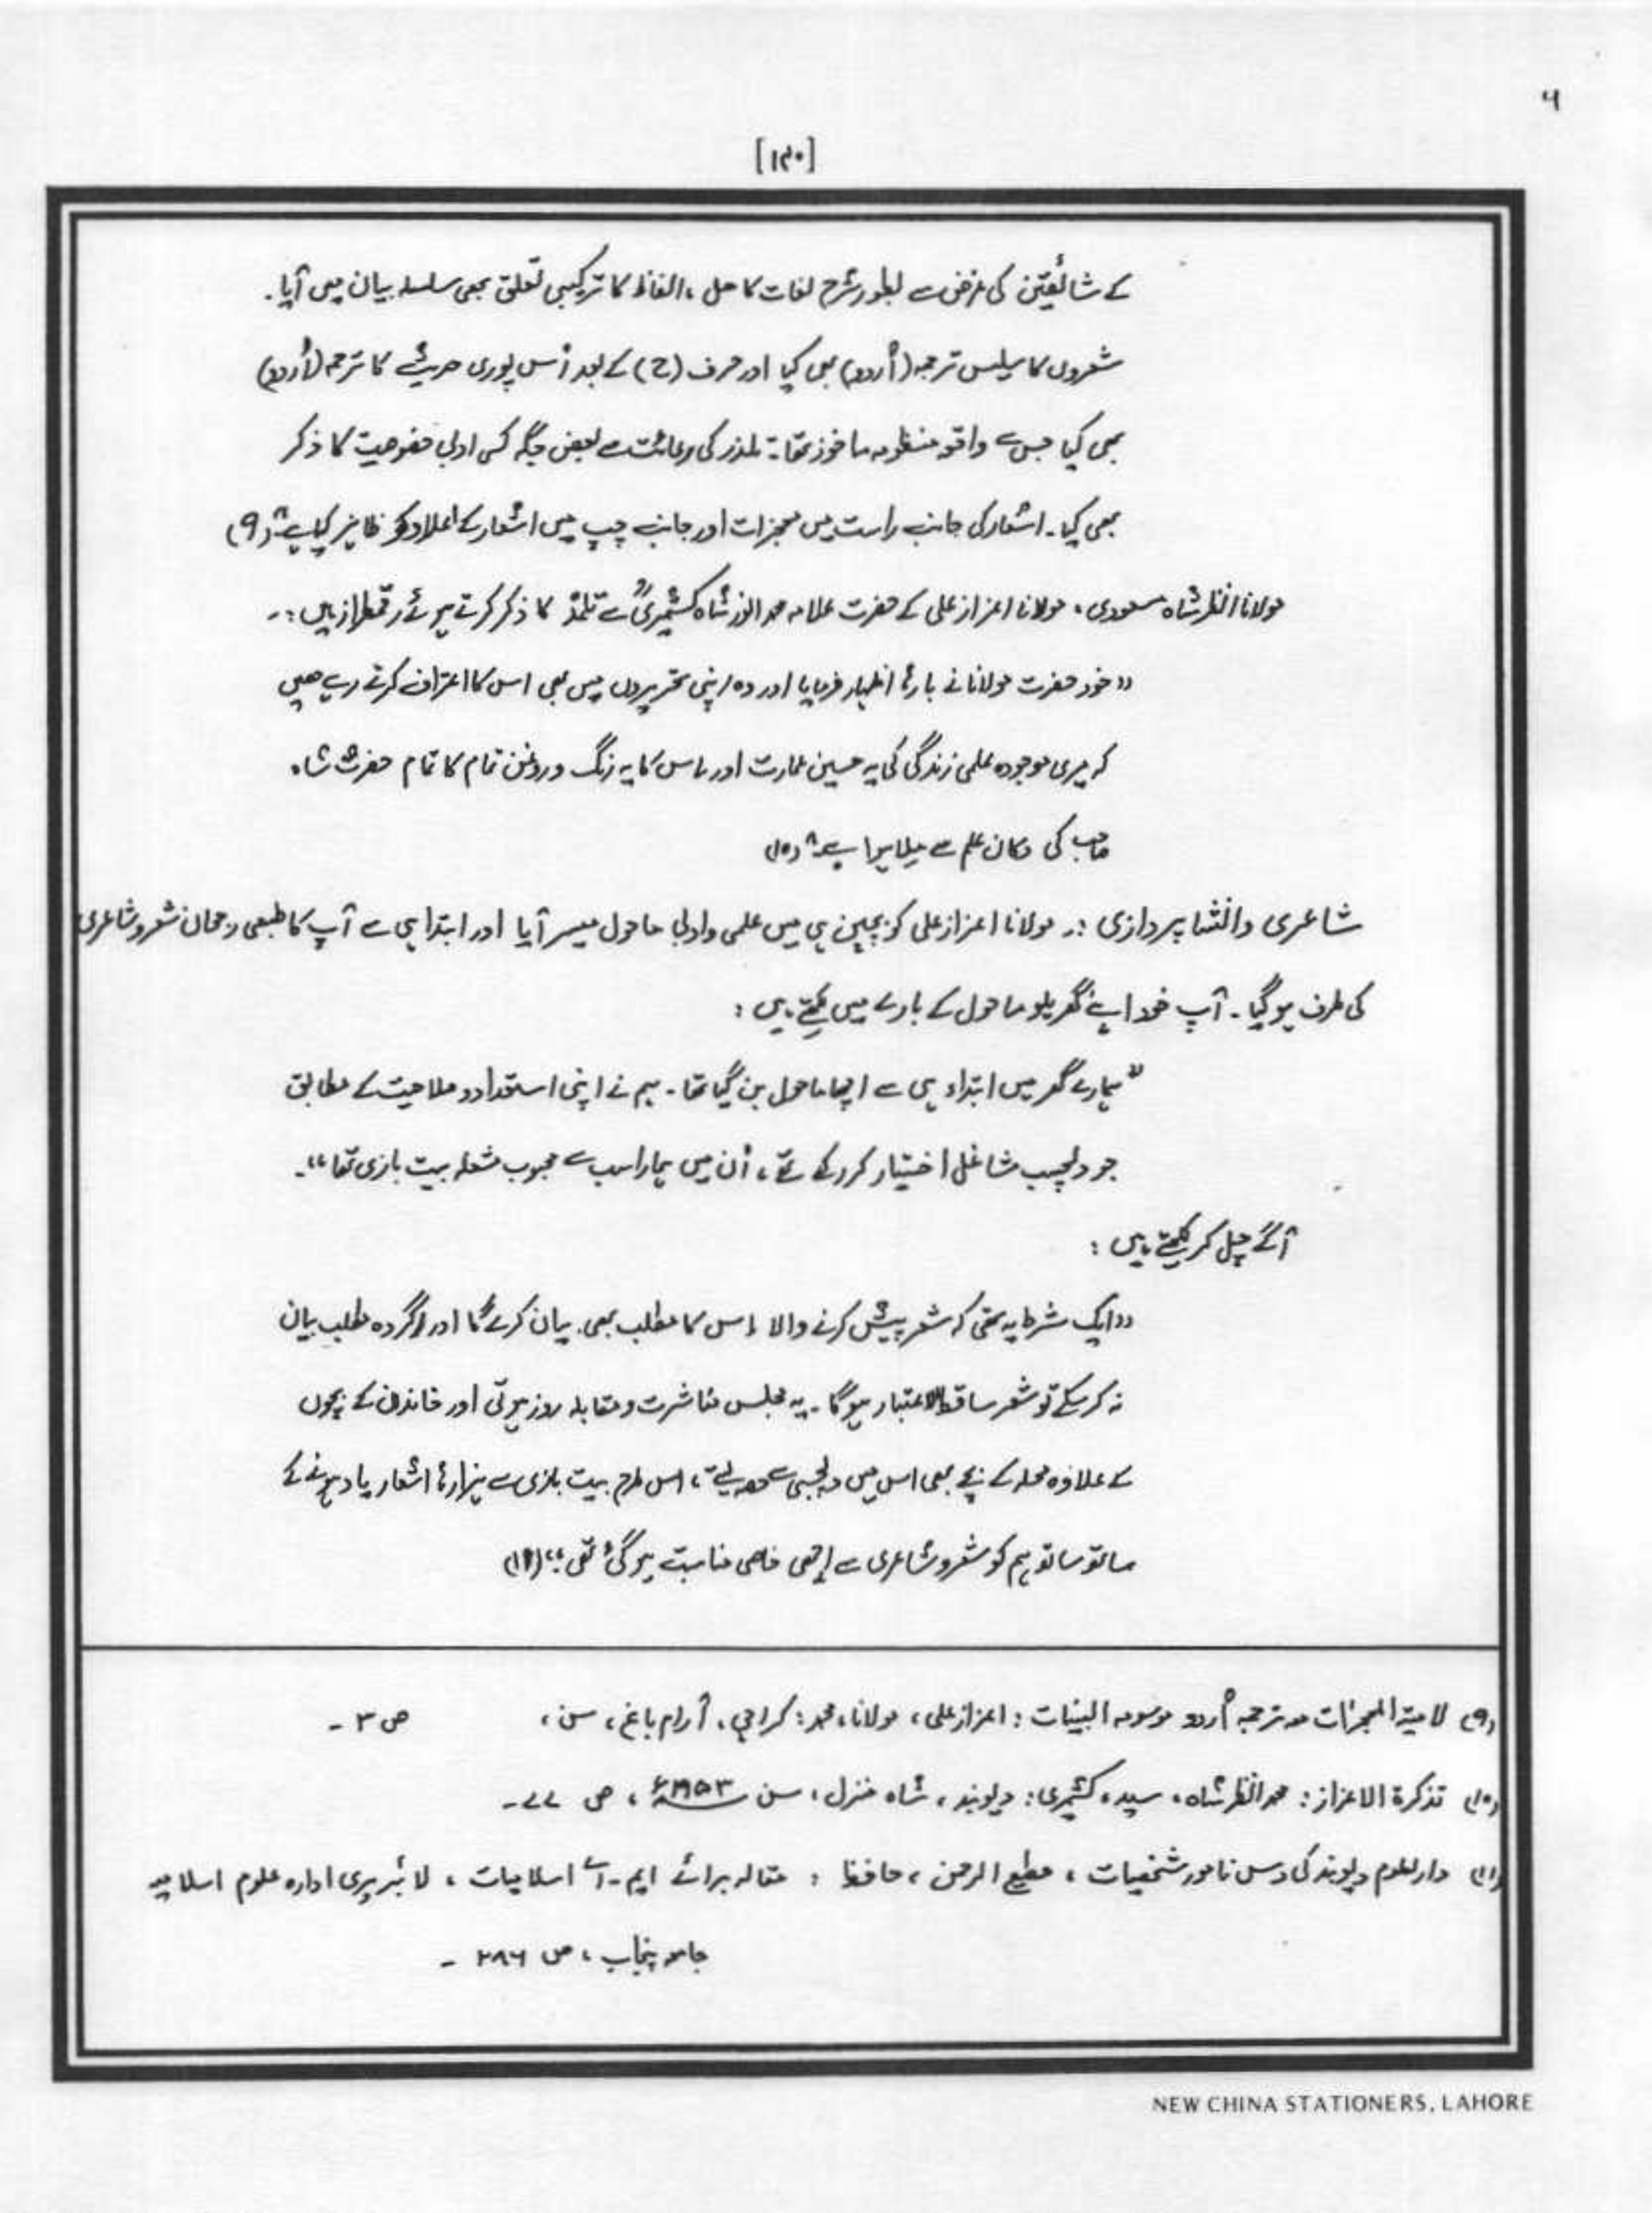 ۶
[۱۴۰]
کے شائقین کی غرض سے بطور شرح لغات کا حل ، الفاظ کا ترکیبی تعلق بھی سلسلہ بیان میں آیا۔
شعروں کا سلیس ترجمہ (اُردو) بھی کیا اور حرف (ح) کے بعد اُس پوری حدیث کا ترجمہ (اُردو)
بھی کیا جس سے واقعہ منظومہ ماخوذ تھا۔ تلمذ کی رعائت سے بعض جگہ کسی ادبی خصوصیت کا ذکر
بھی کیا۔ اشعار کی جانب راست میں معجزات اور جانب چپ میں اشعار کے اعداد کو ظاہر کیا ہے" (۹)
مولانا انظر شاہ مسعودی ، مولانا اعزاز علی کے حضرت علامہ محمد انور شاہ کشمیریؒ سے تلمذ کا ذکر کرتے ہوئے رقمطراز ہیں :۔
"خود حضرت مولانا نے بارہا اظہار فرمایا اور وہ اپنی تحریروں میں بھی اس کا اعتراف کرتے رہے ھیں
کہ میری موجودہ علمی زندگی کی یہ حسین عمارت اور اس کا یہ رنگ و روغن تمام کا تمام حضرت شاہ
صاحب کی دکان علم سے ملا ہوا ہے" (۱۰)
شاعری و انشا پردازی :۔ مولانا اعزاز علی کو بچپن ہی میں علمی و ادبی ماحول میسر آیا اور ابتدا ہی سے آپ کا طبعی رجحان شعر و شاعری
کی طرف ہو گیا۔ آپ خود اپنے گھریلو ماحول کے بارے میں لکھتے ہیں :
"ہمارے گھر میں ابتداء ہی سے اچھا ماحول بن گیا تھا۔ ہم نے اپنی استعداد و صلاحیت کے مطابق
جو دلچسپ مشاغل اختیار کر رکھے تھے ، اُن میں ہمارا سب سے محبوب مشغلہ بیت بازی تھا"۔
آگے چل کر لکھتے ہیں :
"ایک شرط یہ تھی کہ شعر پیش کرنے والا اِس کا مطلب بھی بیان کرے گا اور اگر وہ مطلب بیان
نہ کر سکے تو شعر ساقط الاعتبار ہو گا۔ یہ مجلس و مقابلہ روز ہوتی اور خاندان کے بچوں
کے علاوہ محلہ کے بچے بھی اس میں دلچسپی سے حصہ لیتے ، اس طرح بیت بازی سے ہزارہا اشعار یاد ہونے کے
ساتھ ساتھ ہم کو شعر و شاعری سے اچھی خاصی مناسبت ہو گئی تھی"؛ (۱۱)
(۹) لامیۃ المعجزات مع ترجمہ اُردو موسومہ البینات : اعزاز علی ، مولانا ، محمد : کراچی ، آرام باغ ، سن ، ص ۳ ۔
(۱۰) تذکرۃ الاعزاز : محمد انظر شاہ ، سید ، کشمیری : دیوبند ، شاہ منزل ، سن ۱۹۵۳ء ، ص ۷۷۔
(۱۱) دارالعلوم دیوبند کی دس نامور شخصیات ، مطیع الرحمن ، حافظ : مقالہ برائے ایم ۔ اے اسلامیات ، لائبریری ادارہ علوم اسلامیہ
جامعہ پنجاب ، ص ۲۸۶ ۔
NEW CHINA STATIONERS, LAHORE